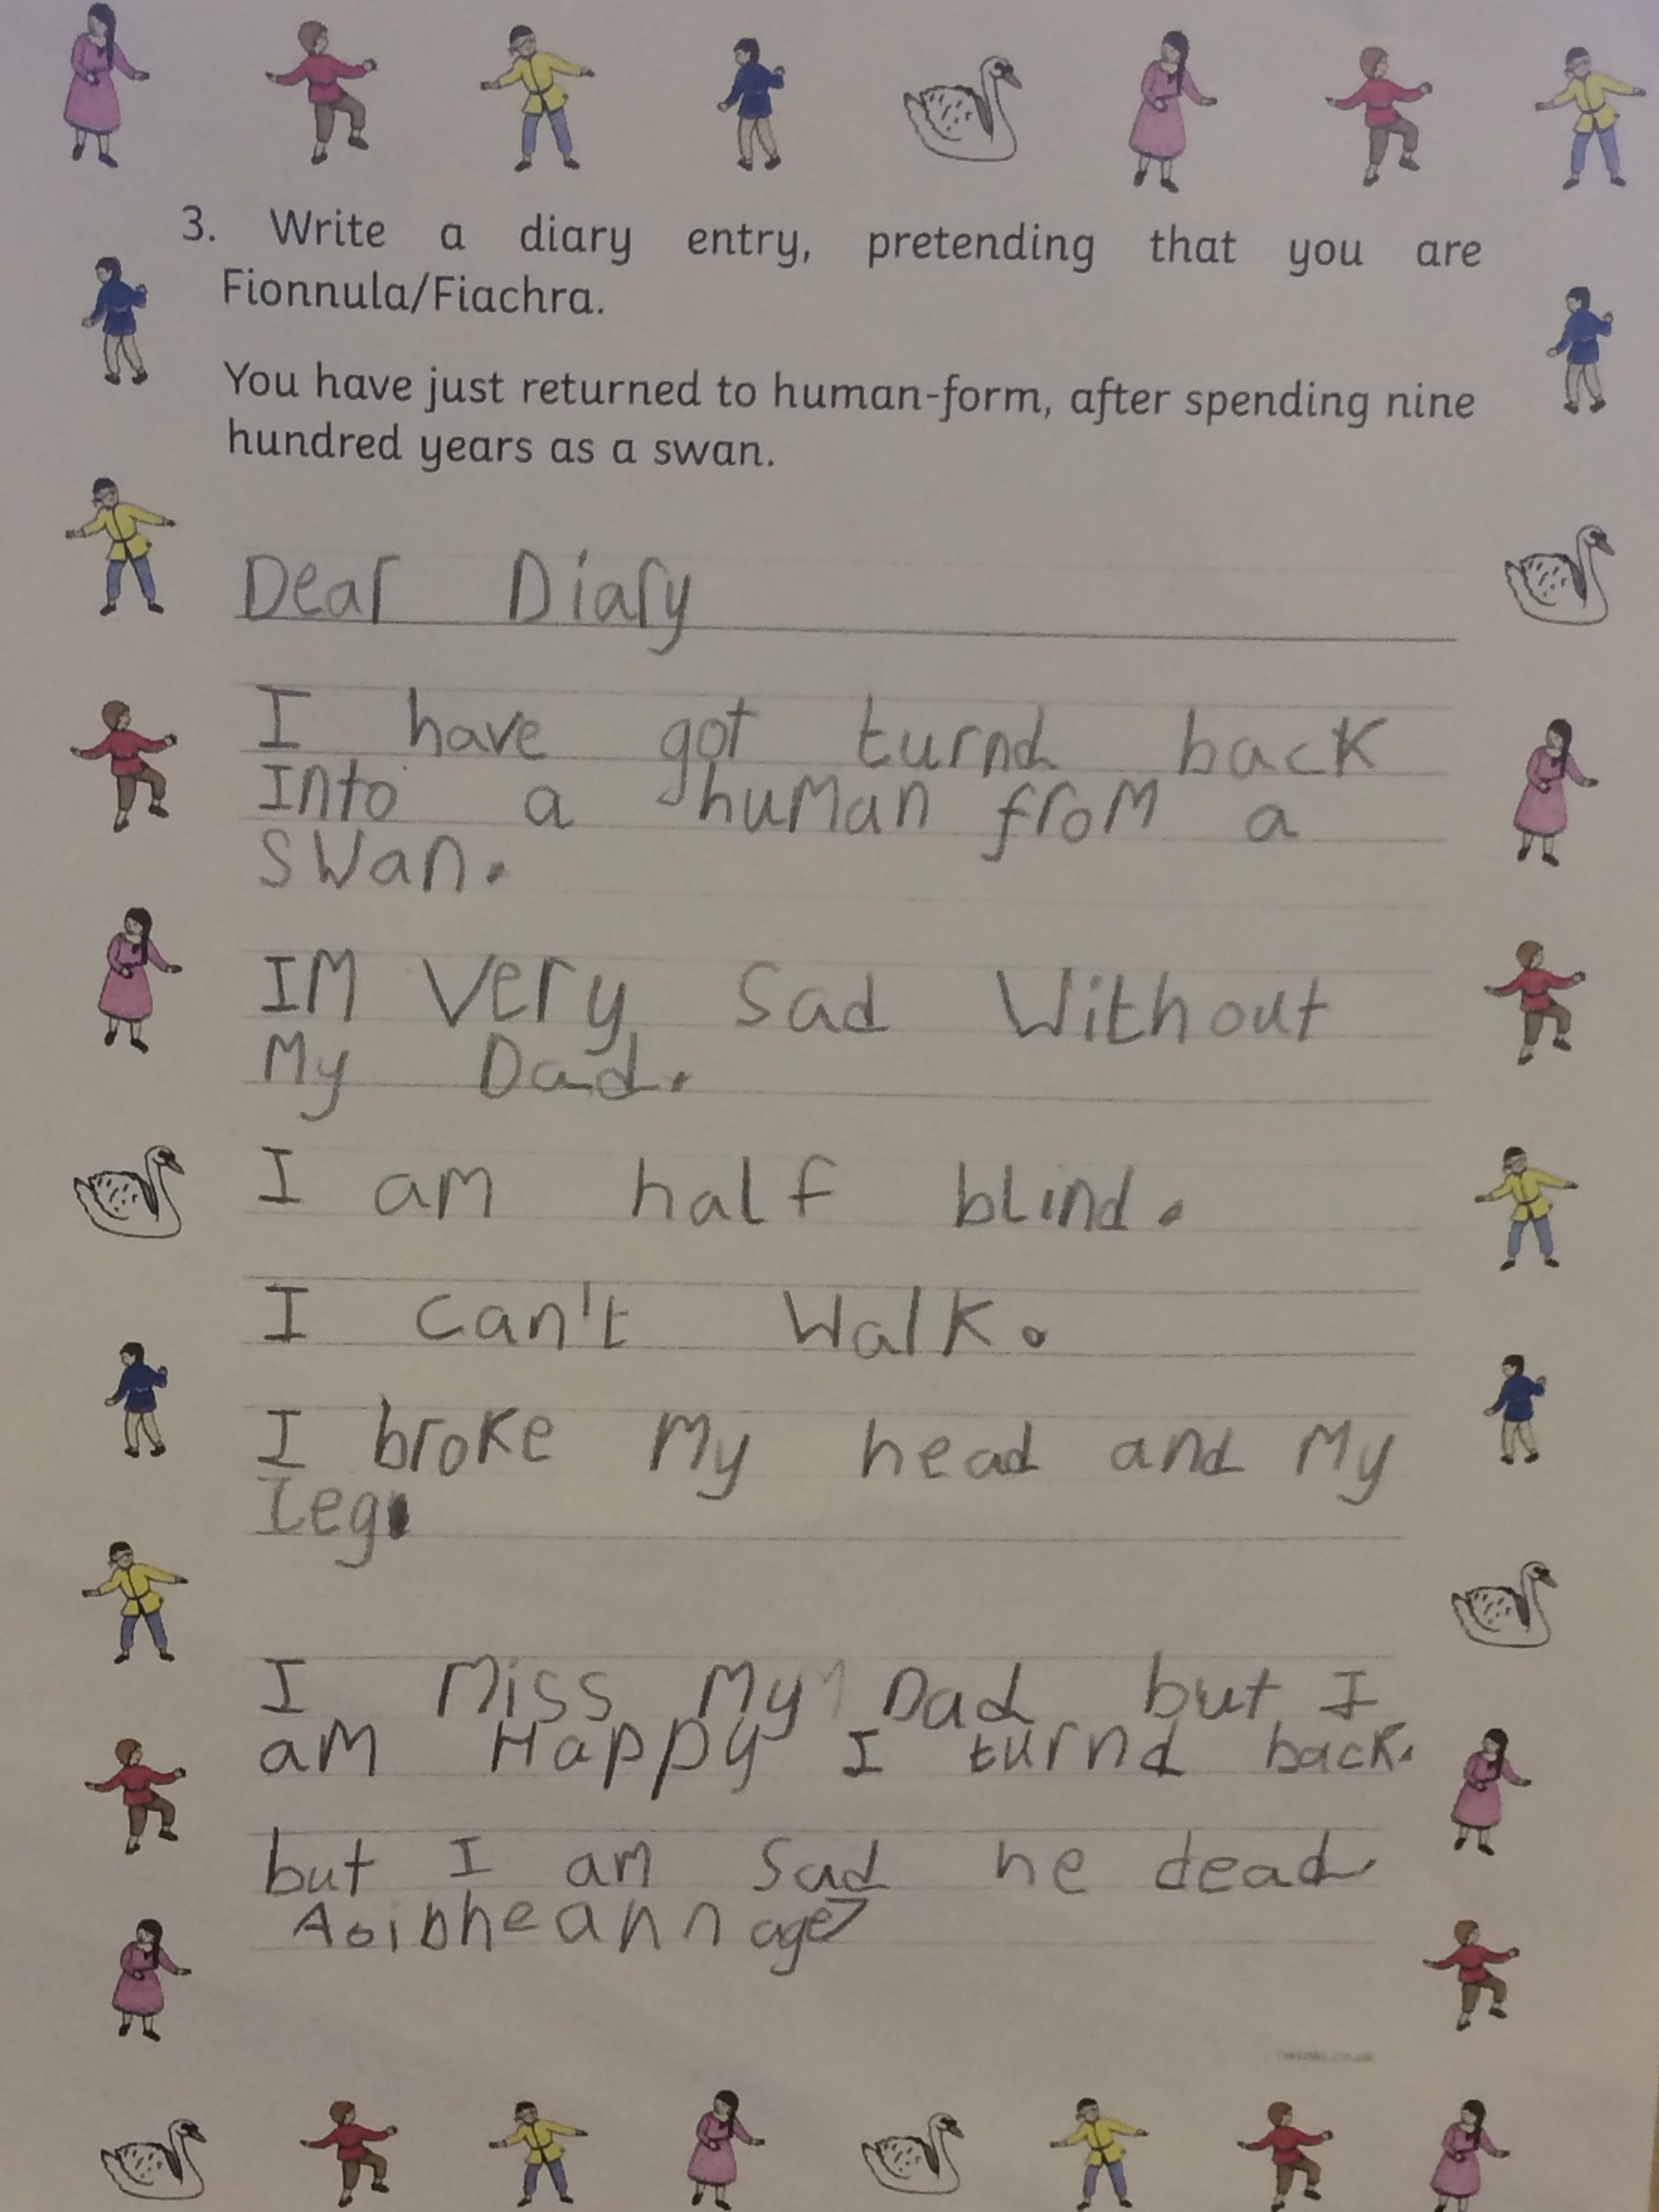 3. Write a diary entry, pretending that you are
Fionnula/Fiachra.
You have just returned to human-form, after spending nine
hundred years as a swan.
Dear Diary
I have got turnd back
Into a human from a
swan.
IM very sad Without
My Dad.
I am half blind.
I can't walk.
I broke My head and My
Leg
I Miss My Dad but I
am Happy I turnd back.
but I am sad he dead
Aoibheann age 7
twinkl.co.uk